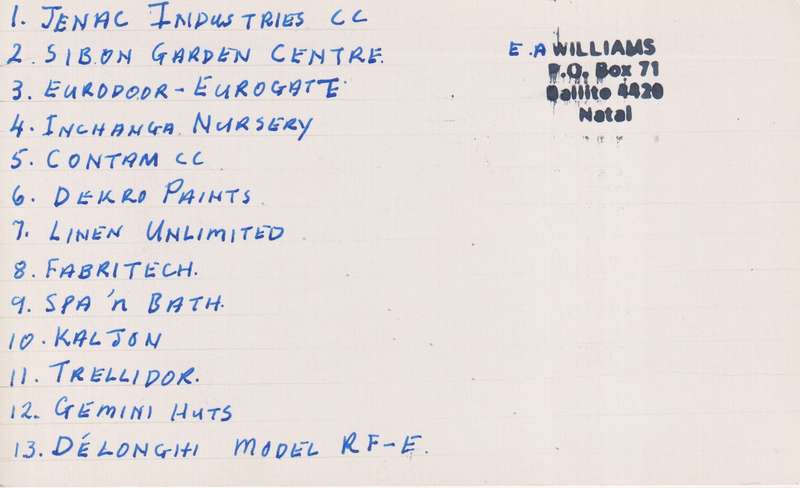 1. JENAC INDUSTRIES CC
2. SIBON GARDEN CENTRE.
3. EURODOOR-EUROGATE
4. INCHANGA NURSERY
5. CONTAM CC
6. DEKRO PAINTS
7. LINEN UNLIMITED
8. FABRITECH.
9. SPA 'n BATH.
10. KALJON
11. TRELLIDOR.
12. GEMINI HUTS
13. DÉLONGHI MODEL RF-E.
E.A WILLIAMS
P.O. Box 71
Ballito 4420
Natal